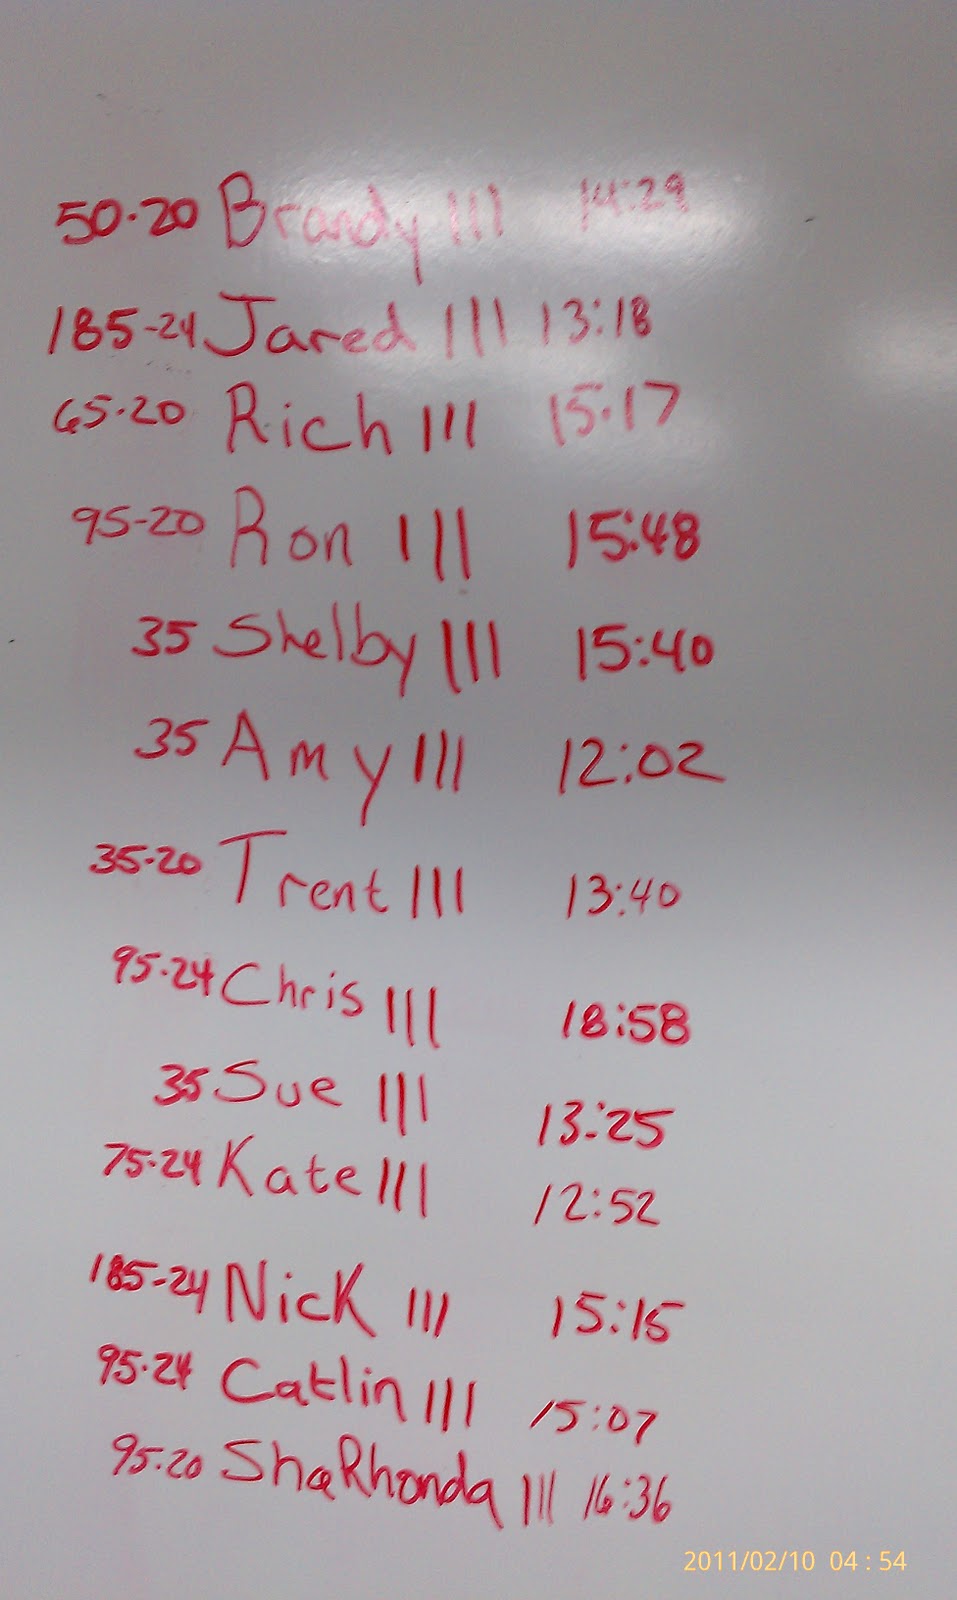 50-20 Brandy ||| 14:29
185-24 Jared ||| 13:18
65-20 Rich ||| 15:17
95-20 Ron ||| 15:48
35 Shelby ||| 15:40
35 Amy ||| 12:02
35-20 Trent ||| 13:40
95-24 Chris ||| 18:58
35 Sue ||| 13:25
75-24 Kate ||| 12:52
185-24 Nick ||| 15:15
95-24 Catlin ||| 15:07
95-20 ShaRhonda ||| 16:36
2011/02/10 04:54